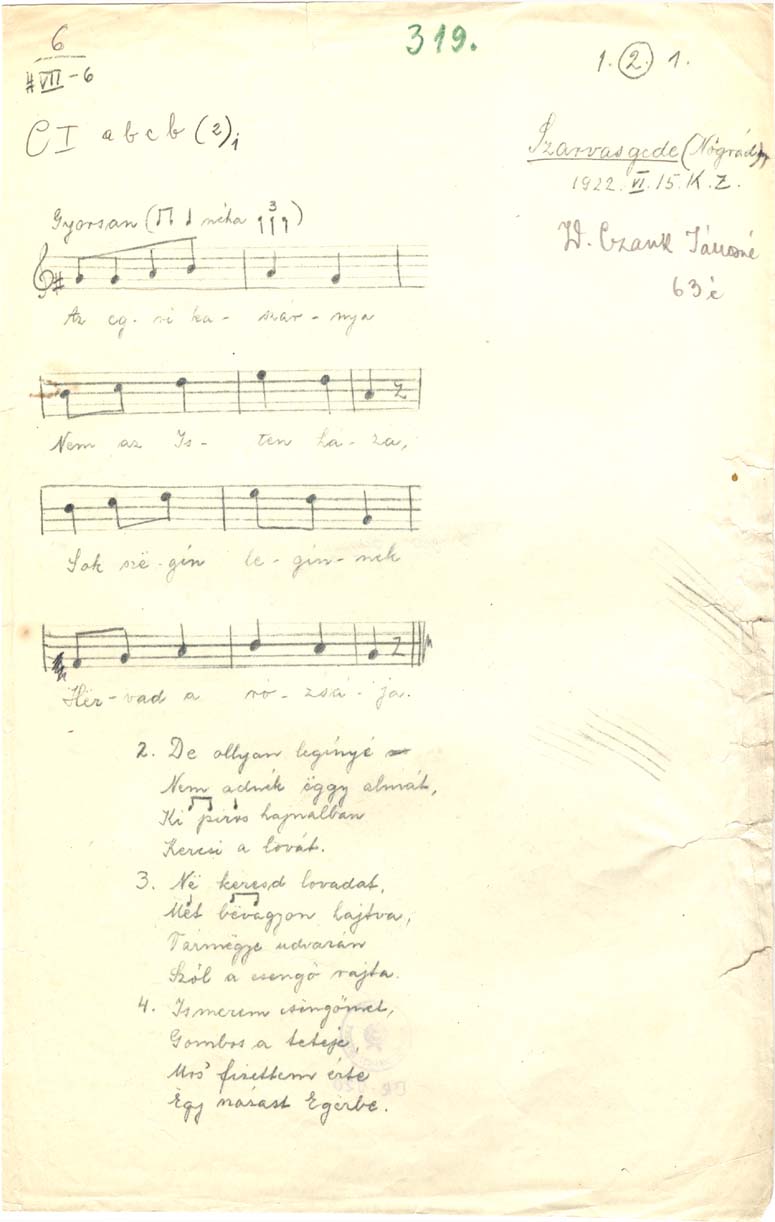 6
#VII-6
319.
1. 2. 1.
C I a b c b (2)
Szarvasgede (Nógrád)
1922. VI. 15. K. Z.
Czank Jánosné
63 é
Gyorsan ( néha 3 )
Az eg- ri ka- szár- nya
Nem az Is- ten há- za,
Sok szë- gín le- gín- nek
Hër- vad a ró- zsá- ja.
2. De ollyan legínyé
Nem adnék ëggy almát,
Ki piros hajnalban
Keresi a lovát.
3. Në keresd lovadat,
Mët bëvagyon hajtva,
Tármëgye udvarán
Szól a csengő rajta.
4. Ismerem csingőmet,
Gombos a teteje,
Mos' fizettem érte
Ëgy húzast Egërbe.